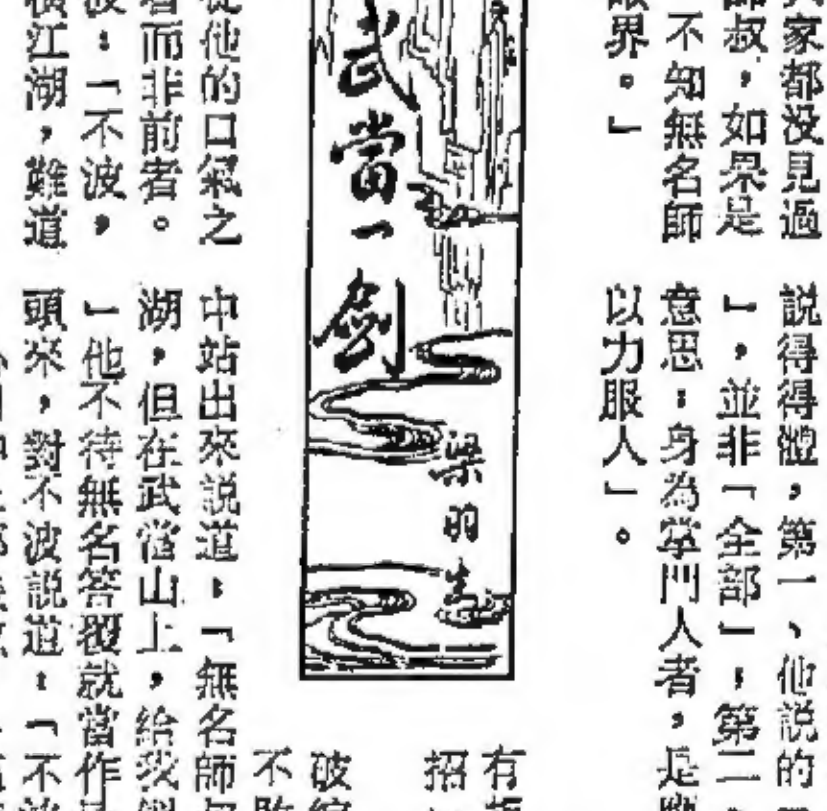 家都没見過
師叔，如果是
不知無名師
眼界。」
説得得體，第一、他説的
」，並非「全部」；第二、
意思：身為掌門人者，是
以力服人」。
有
招
武當一劍
梁羽生
破綻
不
從他的口氣之
者而非前者。
波：「不波，
橫江湖，難道
中站出來説道：「無名師
湖，但在武當山上，給我
」他不待無名答覆就當作
頭來，對不波説道：「不波